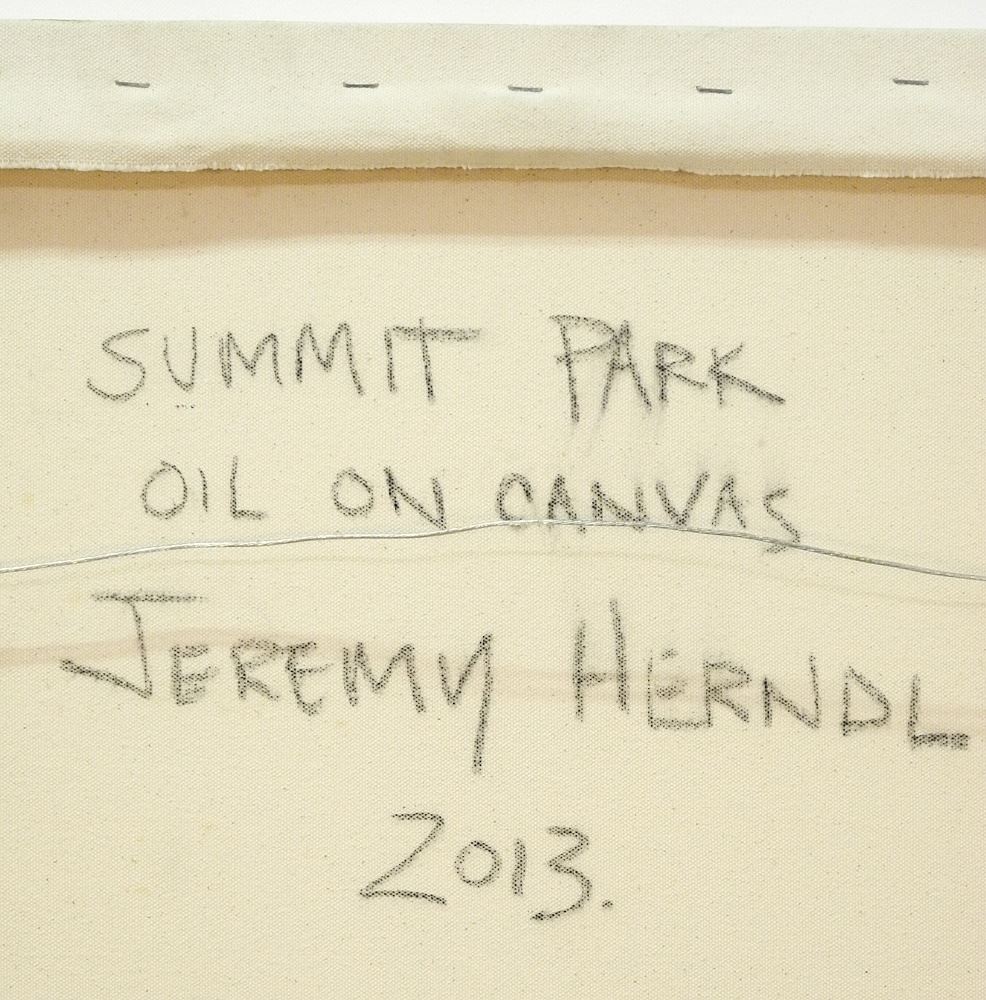 SUMMIT PARK
OIL ON CANVAS
JEREMY HERNDL
2013.